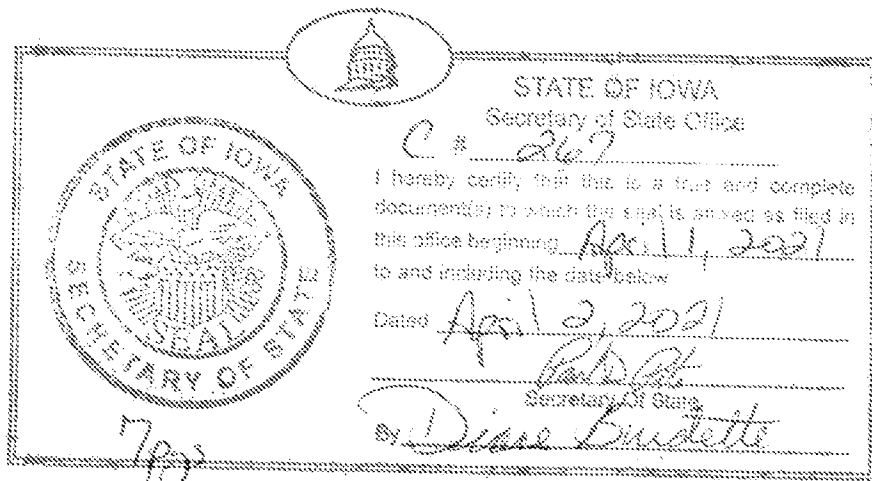 STATE OF IOWA
Secretary of State Office
C # 267
I hereby certify that this is a true and complete
document(s) to which the seal is affixed as filed in
this office beginning April 1, 2021
to and including the date below
Dated April 2, 2021
Secretary Of State
By Diane Burdette
STATE OF IOWA
SEAL
SECRETARY OF STATE
7 pgs